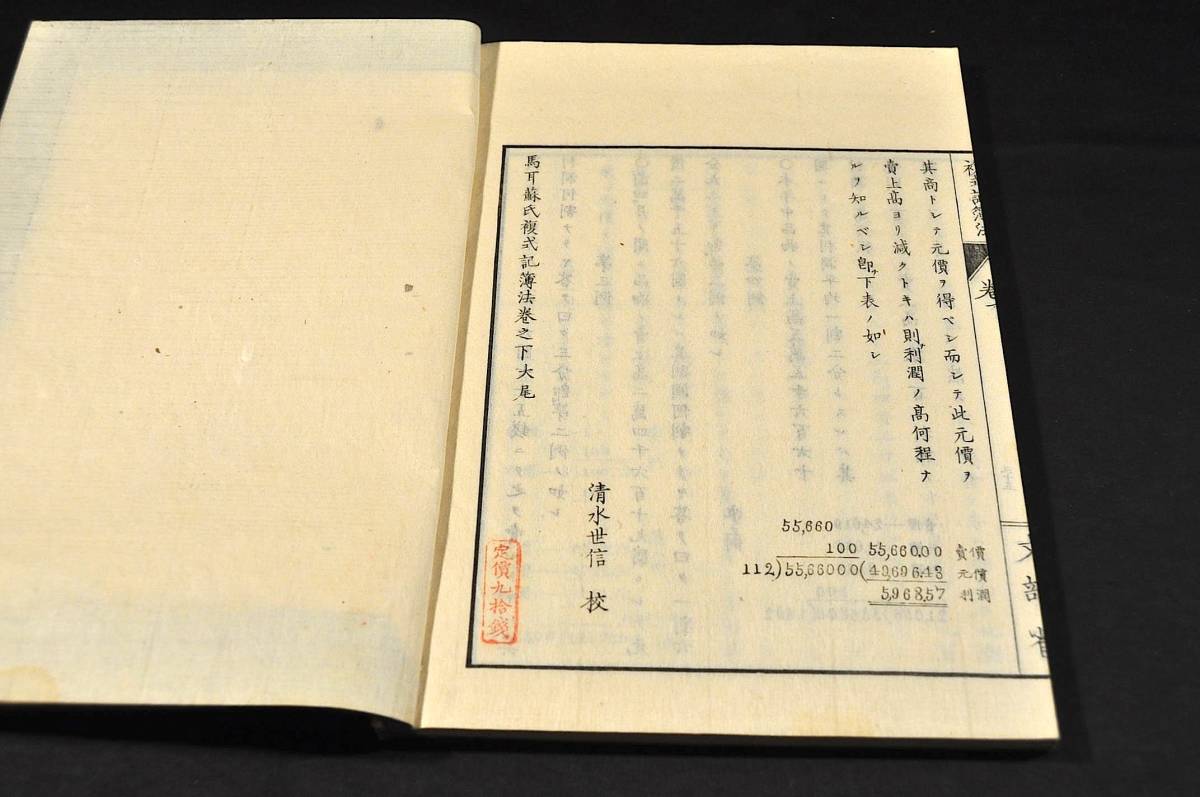 複式記簿法
卷
文部省
其商トシテ元價ヲ得ベシ而シテ此元價ヲ
賣上高ヨリ減クトキハ則利潤ノ高何程ナ
ルヲ知ルベシ卽下表ノ如シ
55,660
100 55,660.00 賣價
112)55,66000(49,696.43 元價
5,968,57 利潤
馬耳蘇氏複式記簿法卷之下大尾
清水世信 校
定價九拾錢